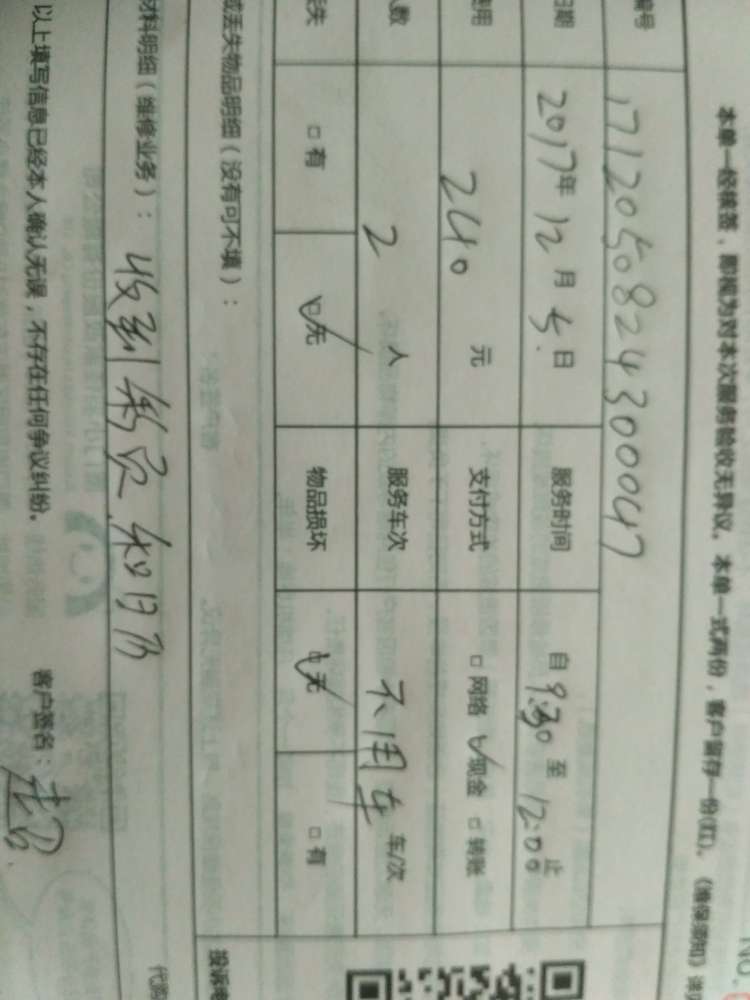 NO.
本单一经接签，即视为对本次服务验收无异议。本单一式两份，客户留存一份(红)。《维保须知》
编号 171205082430004
日期 2017年12月5日 服务时间 自9:30至12:00止
费用 240元 支付方式 □网络 ☑现金 □转账
人数 2人 服务车次 不用车 车/次
丢失 □有 ☑无 物品损坏 ☑无 □有
或丢失物品明细（没有可不填）：
投诉电
材料明细（维修业务）：收到
以上填写信息已经本人确认无误，不存在任何争议纠纷。 客户签名：